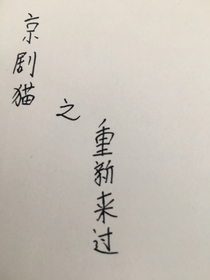 京剧猫
之
重新来过